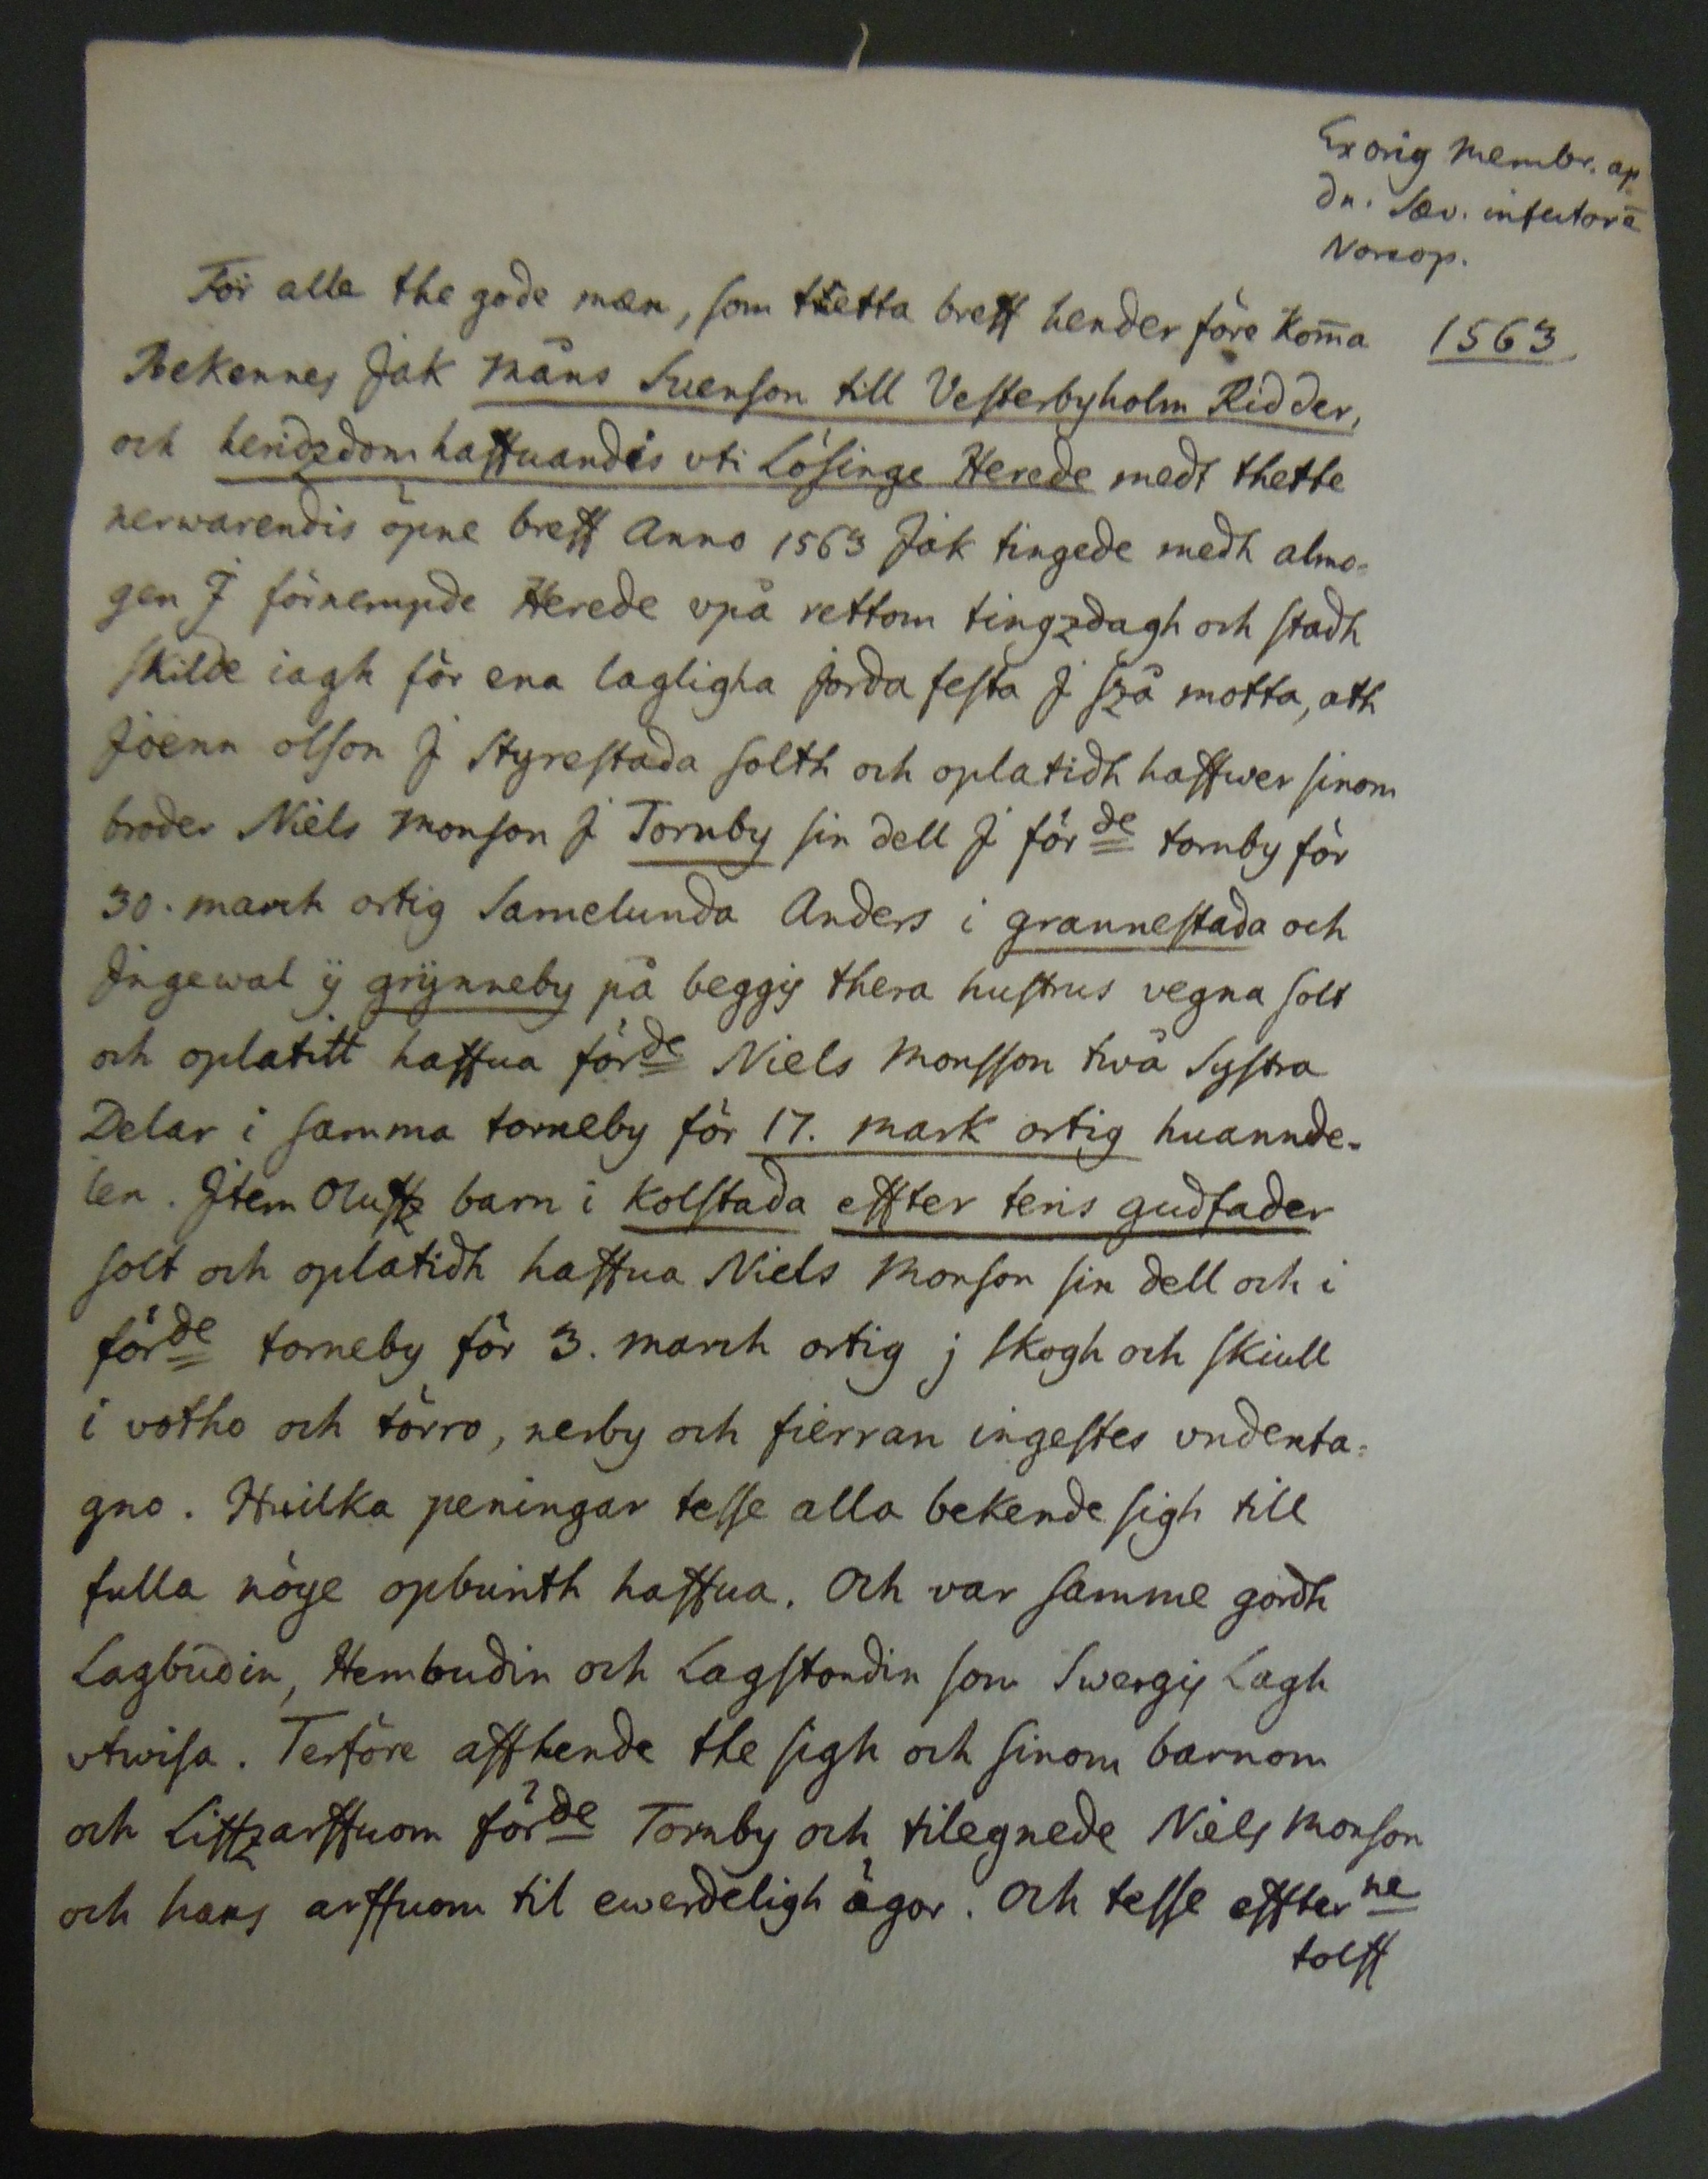 Ex orig membr. ap
dn. Sæv. infectorē
Norcop.
1563
För alle the gode mæn, som thetta breff hender före kom̄a
Bekennes Jak Måns Suenson till Vesterbyholm Ridder,
och heridzdom haffuandis vti Lösinge Herede medt thette
nerwarendis öpne breff Anno 1563 Jak tingede medh almo-
gen J förnempde Herede vpå rettom tingzdagh och stadh
skilde iagh för ena lagligha jorda festa J szå motta, ath
Joenn olson J Styrestada solth och oplatidh haffwer sinom
broder Niels Monson J Tornby sin dell J förde tornby för
30. march ortig Samelunda Anders i grannestada och
Jngewal ÿ grÿnneby på beggis thera hustrus vegna solt
och oplatitt haffua förde Niels Monsson twå Systra
Delar i samma torneby för 17. mark ortig huannde-
len. Jtem Oluffz barn i Kolstada effter teris gudfader
solt och oplatidh haffua Niels Monson sin dell och i
förde torneby för 3. march ortig j skogh och skiull
i votho och törro, nerby och fierran ingestes vndenta-
gno. Huilka peningar tesse alla bekende sigh till
fulla nöye opburith haffua. Och var samme gordh
Lagbudin, Hembudin och Lagstondin som Swergis Lagh
vtwisa. Terföre affhende the sigh och sinom barnom
och Liffzarffuom förde Tornby och tilegnede Niels Monson
och hans arffuom til ewerdeligh ägor. Och tesse effterne
tolff